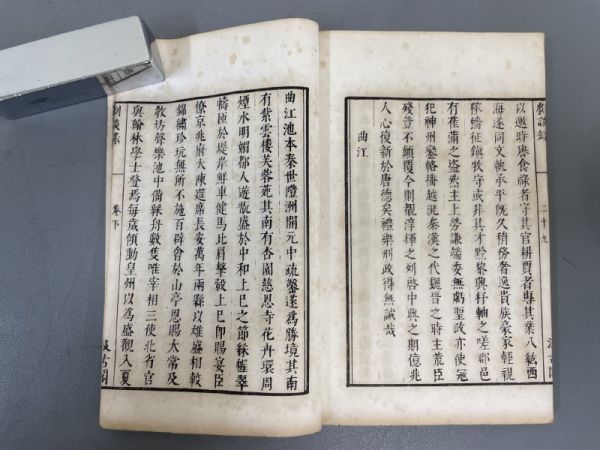 劇談錄 二十九
以邀時譽食祿者守其官耕賈者專其業八紘西
海遂同文軌承平既久稍傍者逸貴族豪家輕視
稼穡征鎮牧守或非其才黔黎興杼軸之嗟郡邑
有萑蒲之盜然主上劳謙端委無虧聖政亦使冦
犯神州鑾輅播越況秦漢之代魏晉之時主荒臣
殘豈不顛覆今則覩渾之列啓中興之期億兆
人心復新於唐德矣禮樂刑政得無誡哉
曲江
曲江池本秦世隑洲開元中疏鑿遂爲勝境其南
有紫雲樓芙蓉苑其南有杏園慈恩寺花卉環周
煙水明媚都人遊翫盛於中和上巳之節綵幄翠
幬匝於堤岸鮮車健馬比肩擊轂上巳卽賜宴臣
僚京兆府大陳筵席長安萬年兩縣以雄盛相較
錦繡珍玩無所不施百辟會於山亭恩賜太常及
敎坊聲樂池中備綵舟數隻唯宰相三使北省官
與翰林學士登焉每歲傾動皇州以為盛觀入夏
劇談錄 卷下 汲古閣